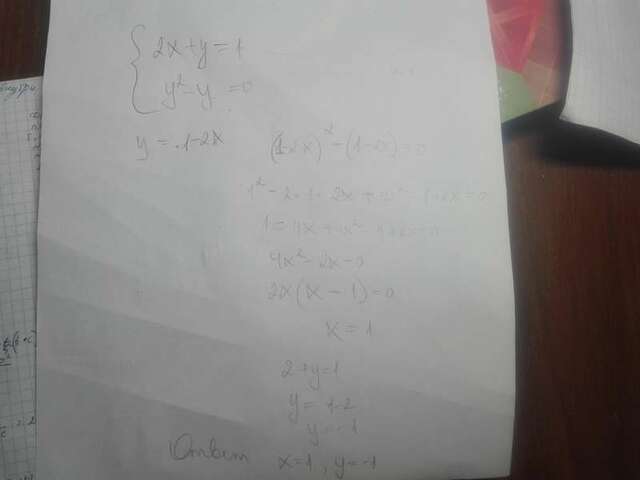 2x+y=1
y²-y =0
y = 1-2x
(1-2x)²-(1-2x)=0
1²-2·1·2x+4x²-1+2x=0
1-4x+4x²-1+2x=0
4x²-2x=0
2x(x-1)=0
x=1
2+y=1
y=1-2
y=-1
Ответ x=1, y=-1